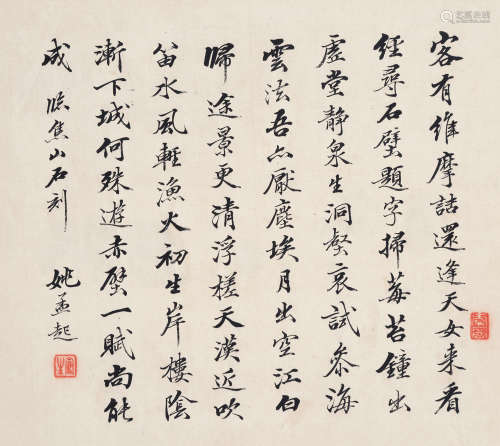 客有維摩詰還逢天女來看
經尋石壁題字掃莓苔鐘出
虛堂靜泉生洞壑哀試參海
雲法吾亦厭塵埃月出空江白
歸途景更清浮槎天漢近吹
笛水風輕漁火初生岸樓陰
漸下城何殊遊赤壁一賦尚能
成 臨焦山石刻 姚孟起